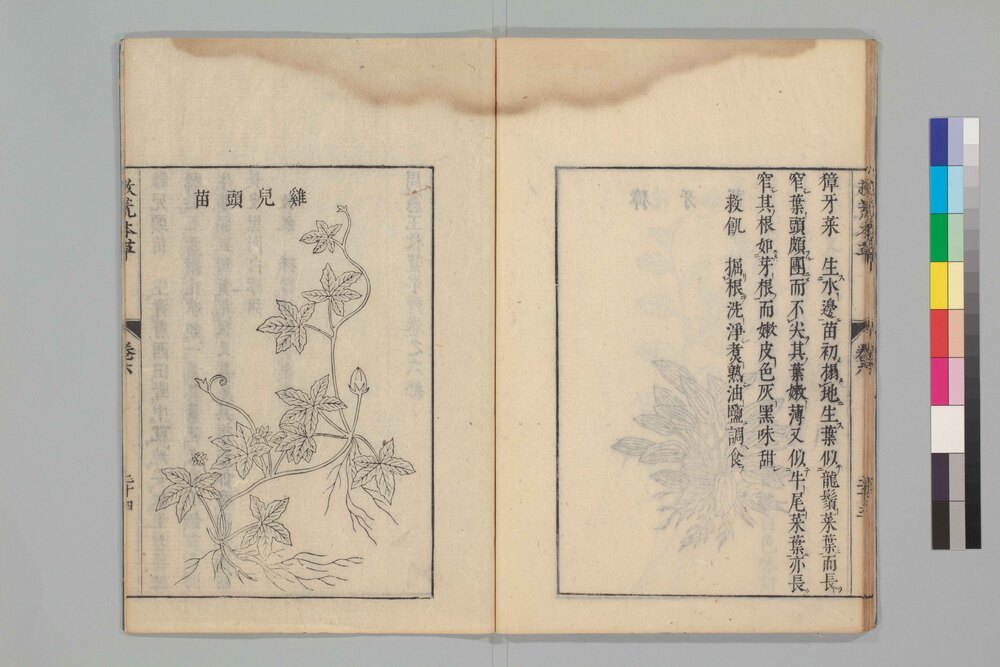 獐牙菜　生水邊苗初搨地生葉似龍鬚菜葉而長
窄葉頭頗團而不尖其葉嫩薄又似牛尾菜葉亦長
窄其根如茅根而嫩皮色灰黑味甜
救飢　掘根洗淨煑熟油鹽調食
雞兒頭苗
救荒本草
卷六
二十四